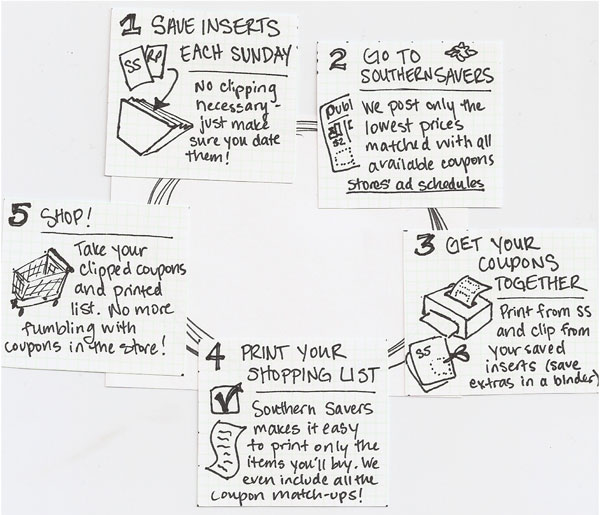 1 SAVE INSERTS
EACH SUNDAY
SS RP
No clipping
necessary -
just make
sure you date
them!
2 GO TO
SOUTHERNSAVERS
publ
$2
We post only the
lowest prices
matched with all
available coupons
stores' ad schedules
3 GET YOUR
COUPONS
TOGETHER
SS
Print from SS
and clip from
your saved
inserts (save
extras in a binder)
4 PRINT YOUR
SHOPPING LIST
Southern Savers
makes it easy
to print only the
items you'll buy. We
even include all the
coupon match-ups!
5 SHOP!
Take your
clipped coupons
and printed
list. No more
fumbling with
coupons in the store!